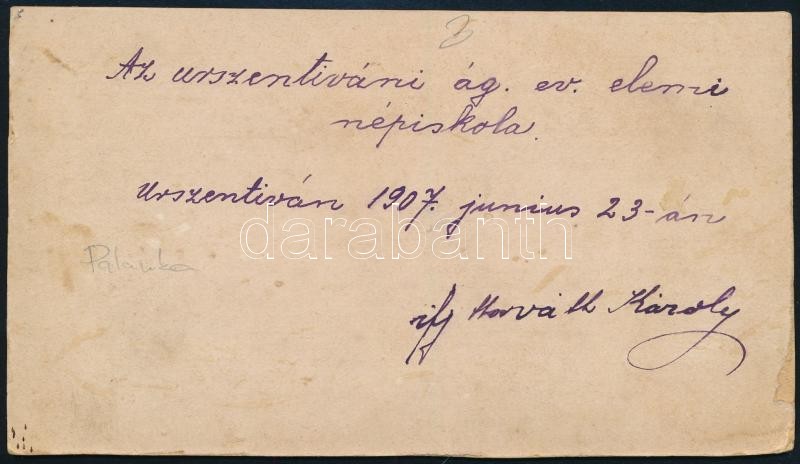 3
Az urszentiváni ág. ev. elemi
népiskola.
Urszentiván 1907. junius 23-án
darabanth
Palanka
ifj Horváth Károly